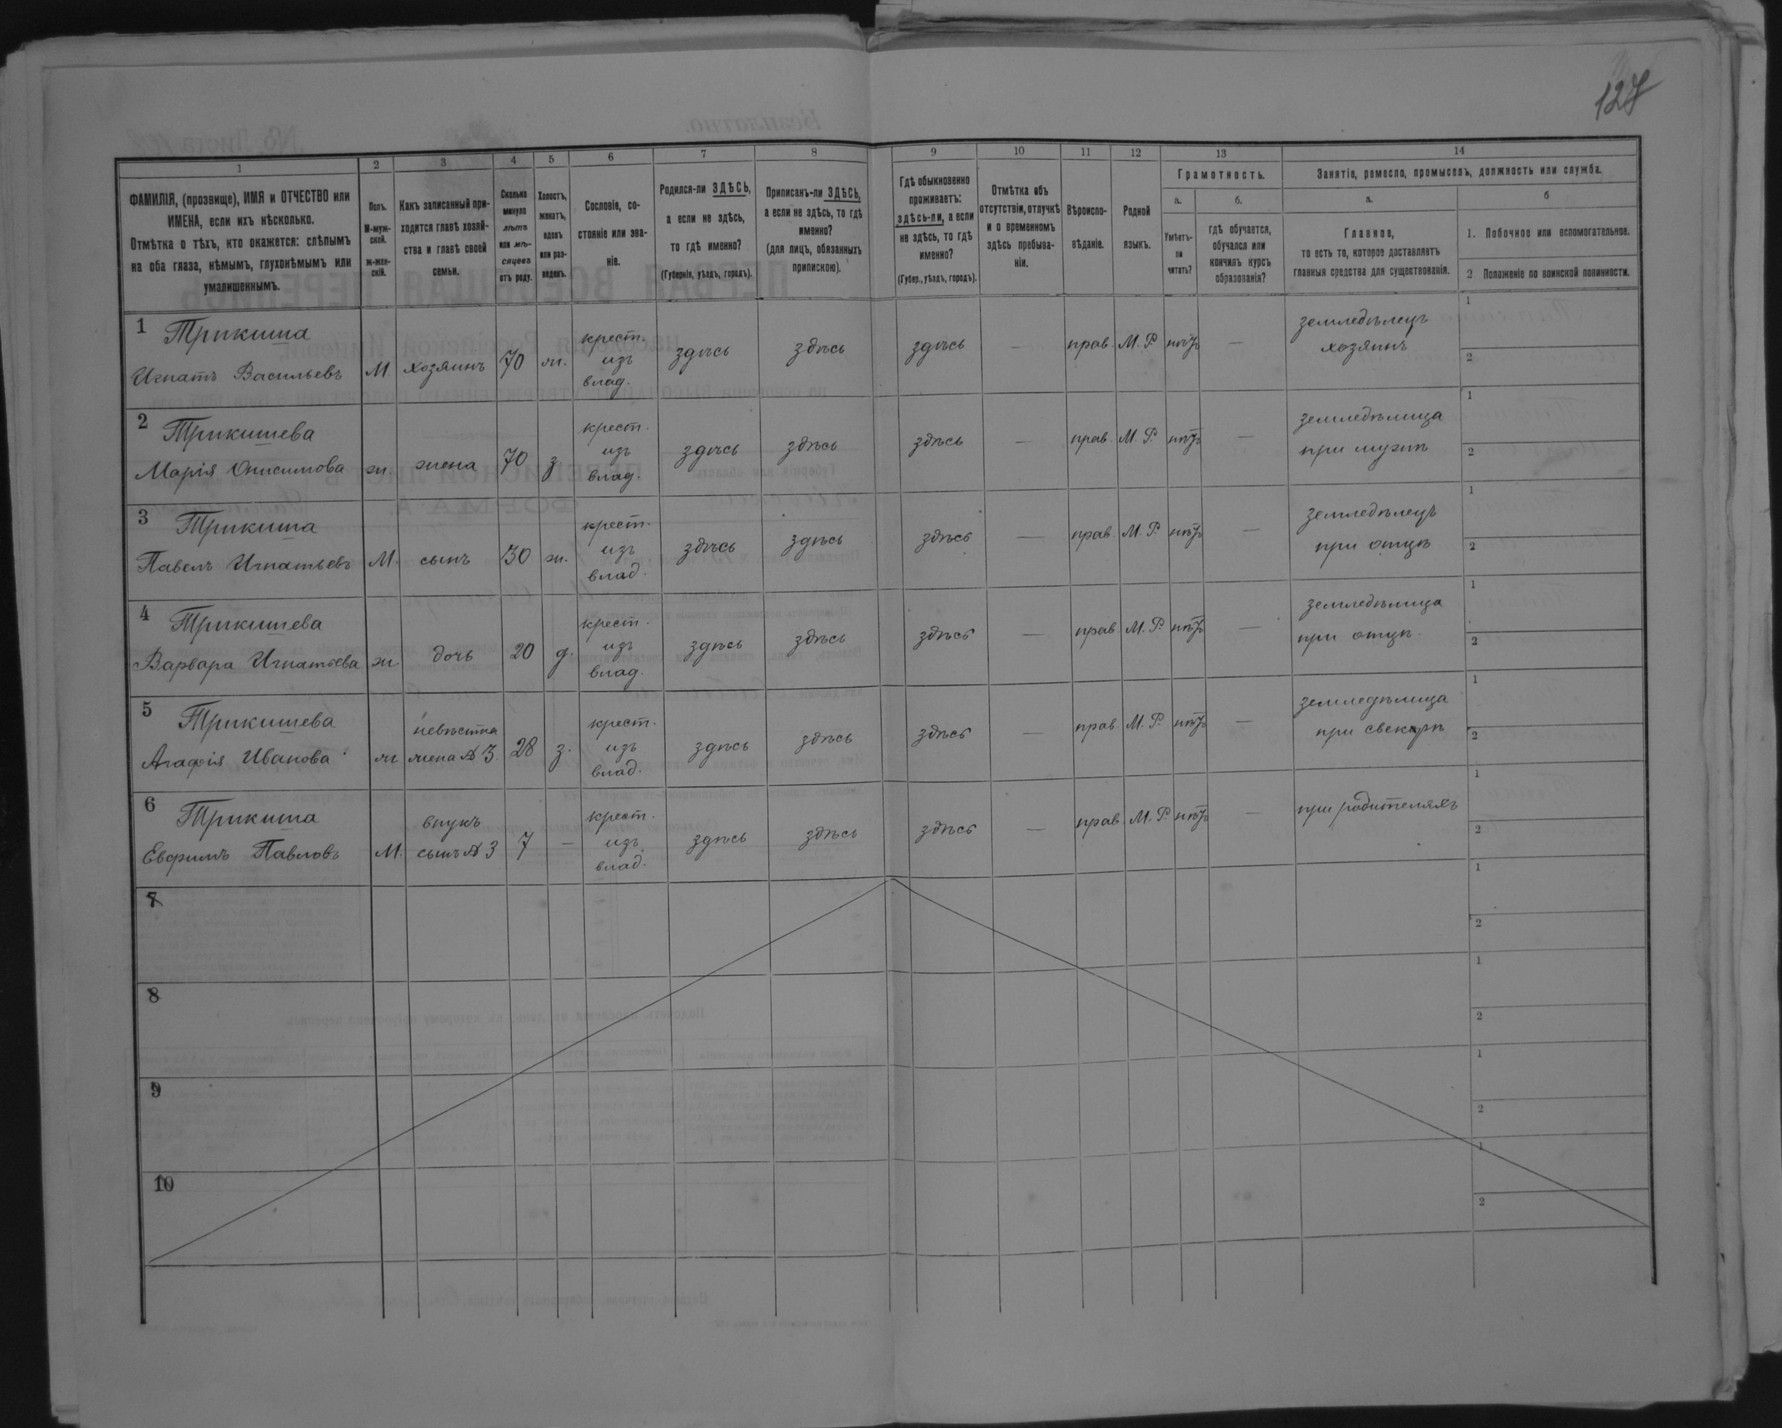 127
1 2 3 4 5 6 7 8 9 10 11 12 13 14
ФАМИЛІЯ, (прозвище), ИМЯ и ОТЧЕСТВО или
ИМЕНА, если ихъ нѣсколько.
Отмѣтка о тѣхъ, кто окажется: слѣпымъ
на оба глаза, нѣмымъ, глухонѣмымъ или
умалишеннымъ.
Полъ.
М-муж-
ской.
ж-жен-
скій.
Какъ записанный при-
ходится главѣ хозяй-
ства и главѣ своей
семьи.
Сколько
минуло
лѣтъ
или мѣ-
сяцевъ
отъ роду.
Холостъ,
женатъ,
вдовъ
или раз-
веденъ.
Сословіе, со-
стояніе или зва-
ніе.
Родился-ли ЗДѢСЬ,
а если не здѣсь,
то гдѣ именно?
(Губернія, уѣздъ, городъ).
Приписанъ-ли ЗДѢСЬ,
а если не здѣсь, то гдѣ
именно?
(для лицъ, обязанныхъ
припискою).
Гдѣ обыкновенно
проживаетъ:
здѣсь-ли, а если
не здѣсь, то гдѣ
именно?
(Губер., уѣздъ, городъ).
Отмѣтка объ
отсутствіи, отлучкѣ
и о временномъ
здѣсь пребыва-
ніи.
Вѣроиспо-
вѣданіе.
Родной
языкъ.
Грамотность.
а.
Умѣетъ-
ли
читать?
б.
гдѣ обучается,
обучался или
кончилъ курсъ
образованія?
Занятіе, ремесло, промыселъ, должность или служба.
а.
Главное,
то есть то, которое доставляетъ
главныя средства для существованія.
б
1. Побочное или вспомогательное.
2 Положеніе по воинской повинности.
1 Трикиша
Игнатъ Васильевъ М хозяинъ 70 ж. крест. изъ влад. здѣсь здѣсь здѣсь — прав. М. Р. нѣтъ — земледѣлецъ хозяинъ 1 2
2 Трикишева
Марія Онисимова ж. жена 70 з крест. изъ влад. здѣсь здѣсь здѣсь — прав. М. Р. нѣтъ — земледѣлица при мужѣ 1 2
3 Трикиша
Павелъ Игнатьевъ М. сынъ 30 ж. крест. изъ влад. здѣсь здѣсь здѣсь — прав. М. Р. нѣтъ — земледѣлецъ при отцѣ 1 2
4 Трикишева
Варвара Игнатьева ж дочь 20 д. крест. изъ влад. здѣсь здѣсь здѣсь — прав. М. Р. нѣтъ — земледѣлица при отцѣ. 1 2
5 Трикишева
Агафія Иванова ж невѣстка жена № 3. 28 з. крест. изъ влад. здѣсь здѣсь здѣсь — прав. М. Р. нѣтъ — земледѣлица при свекорѣ 1 2
6 Трикиша
Евфимъ Павловъ М. внукъ сынъ № 3 7 — крест. изъ влад. здѣсь здѣсь здѣсь — прав. М. Р. нѣтъ — при родителяхъ 1 2
7 1 2
8 1 2
9 1 2
10 1 2